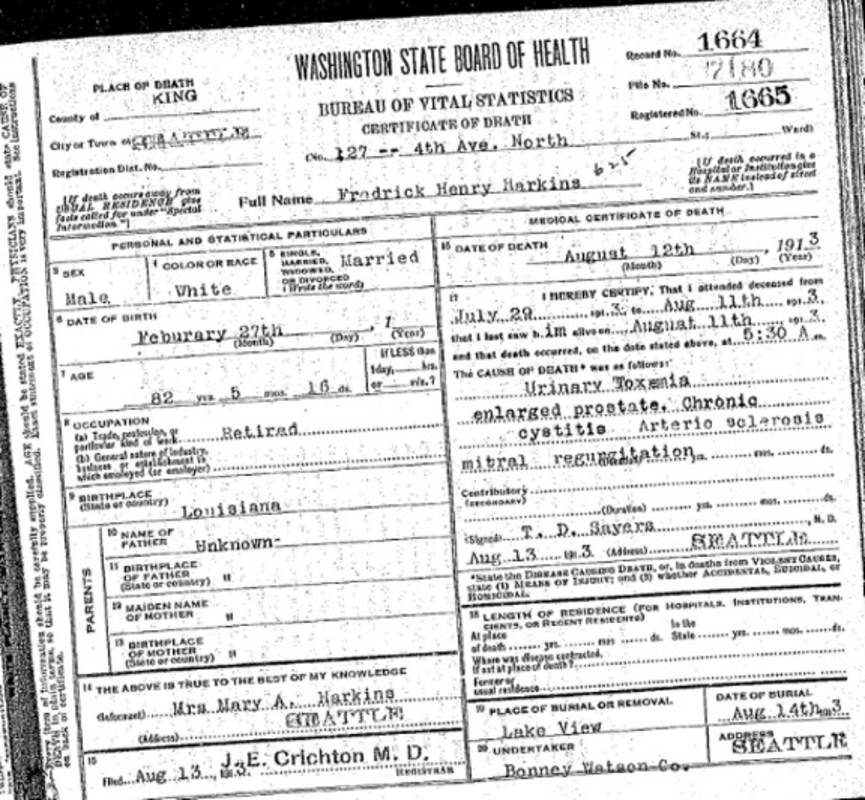 WASHINGTON STATE BOARD OF HEALTH
BUREAU OF VITAL STATISTICS
CERTIFICATE OF DEATH
Record No. 1664
File No. 7180
Registered No. 1665
PLACE OF DEATH
County of KING
City or Town of SEATTLE
Registration Dist. No.
(No. 127 -- 4th Ave. North St.; Ward)
[If death occurs away from USUAL RESIDENCE give facts called for under "Special Information"]
[If death occurred in a Hospital or Institution give its NAME instead of street and number.]
Full Name Fredrick Henry Harkins 625
PERSONAL AND STATISTICAL PARTICULARS
3 SEX
Male
4 COLOR OR RACE
White
5 SINGLE, MARRIED, WIDOWED, OR DIVORCED
(Write the word)
Married
6 DATE OF BIRTH
Feburary 27th, 1
(Month) (Day) (Year)
7 AGE
82 yrs. 5 mos. 16 ds.
If LESS than 1 day, hrs. or min.?
8 OCCUPATION
(a) Trade, profession, or particular kind of work Retired
(b) General nature of industry, business or establishment in which employed (or employer)
9 BIRTHPLACE
(State or country)
Louisiana
PARENTS
10 NAME OF FATHER Unknown-
11 BIRTHPLACE OF FATHER
(State or country) "
12 MAIDEN NAME OF MOTHER "
13 BIRTHPLACE OF MOTHER
(State or country) "
14 THE ABOVE IS TRUE TO THE BEST OF MY KNOWLEDGE
(Informant) Mrs Mary A. Harkins
(Address) SEATTLE
15
Filed Aug 13, 1913. J. E. Crichton M. D.
REGISTRAR
MEDICAL CERTIFICATE OF DEATH
16 DATE OF DEATH
August 12th, 1913
(Month) (Day) (Year)
17 I HEREBY CERTIFY, That I attended deceased from
July 29 1913, to Aug 11th 1913
that I last saw him alive on August 11th 1913
and that death occurred, on the date stated above, at 5:30 A m.
The CAUSE OF DEATH* was as follows:
Urinary Toxemia
enlarged prostate, Chronic
cystitis Arterio sclerosis
mitral regurgitation yrs. mos. ds.
Contributory
(SECONDARY)
(Duration) yrs. mos. ds.
(Signed) T. D. Sayers, M. D.
Aug 13 1913 (Address) SEATTLE
*State the DISEASE CAUSING DEATH, or, in deaths from VIOLENT CAUSES, state (1) MEANS OF INJURY; and (2) whether ACCIDENTAL, SUICIDAL, or HOMICIDAL.
18 LENGTH OF RESIDENCE (FOR HOSPITALS, INSTITUTIONS, TRANSIENTS, OR RECENT RESIDENTS)
At place of death yrs. mos. ds. In the State yrs. mos. ds.
Where was disease contracted, If not at place of death?
Former or usual residence
19 PLACE OF BURIAL OR REMOVAL
Lake View
DATE OF BURIAL
Aug 14th 1913
20 UNDERTAKER
Bonney Watson Co.
ADDRESS
SEATTLE